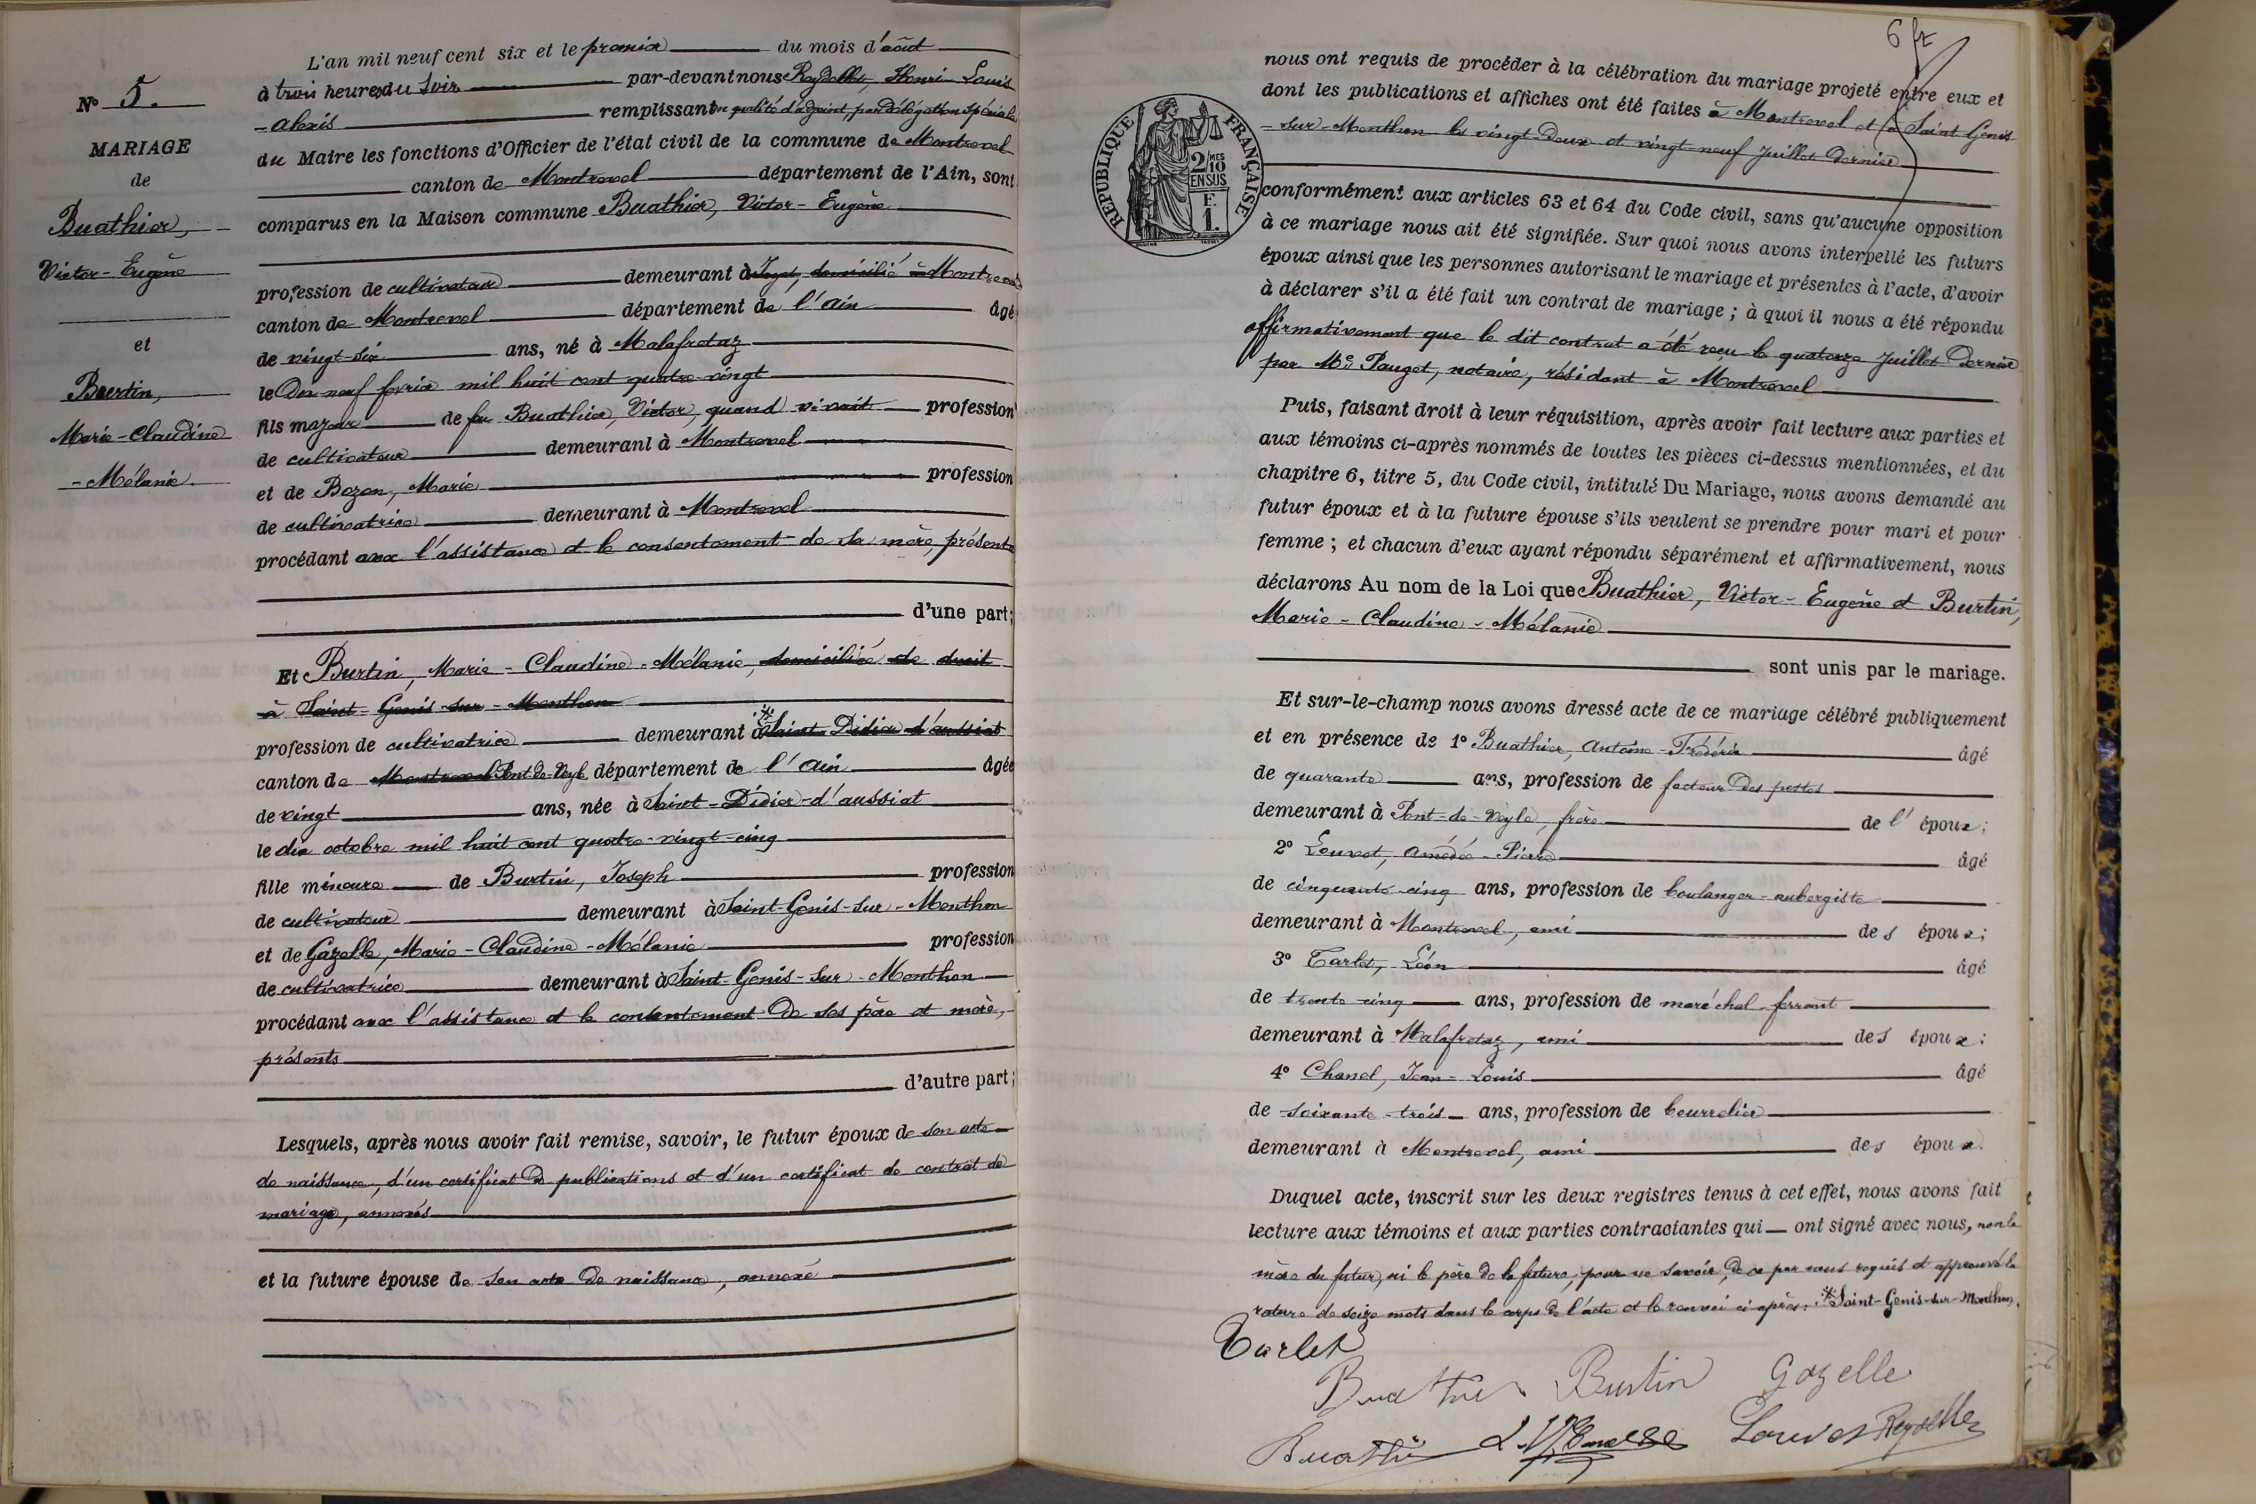 L'an mil neuf cent six et le premier du mois d'août
N° 5. à trois heures du soir par-devant nous Reydellet, Henri-Louis
-Alexis remplissant en qualité d'adjoint, par délégation spéciale
du Maire les fonctions d'Officier de l'état civil de la commune de Montrevel
canton de Montrevel département de l'Ain, sont
comparus en la Maison commune Buathier, Victor-Eugène
profession de cultivateur demeurant à domicilié à Montrevel
canton de Montrevel département de l'Ain âgé
de vingt-six ans, né à Malafretaz
le dix-neuf février mil huit cent quatre-vingt
fils majeur de feu Buathier, Victor, quand vivait profession
de cultivateur demeurant à Montrevel
et de Bozon, Marie profession
de cultivatrice demeurant à Montrevel
procédant avec l'assistance et le consentement de sa mère, présente
d'une part;
Et Burtin, Marie-Claudine-Mélanie, domiciliée de droit
à Saint-Genis-sur-Menthon
profession de cultivatrice demeurant à Saint-Didier-d'aussiat
canton de Montrevel Pont-de-Veyle département de l'Ain âgée
de vingt ans, née à Saint-Didier-d'aussiat
le dix octobre mil huit cent quatre-vingt-cinq
fille mineure de Burtin, Joseph profession
de cultivateur demeurant à Saint-Genis-sur-Menthon
et de Gazelle, Marie-Claudine-Mélanie profession
de cultivatrice demeurant à Saint-Genis-sur-Menthon
procédant avec l'assistance et le consentement de ses père et mère,
présents
d'autre part;
Lesquels, après nous avoir fait remise, savoir, le futur époux de son acte
de naissance, d'un certificat de publications et d'un certificat de contrat de
mariage, annexés
et la future épouse de son acte de naissance, annexé
MARIAGE
de
Buathier,
Victor-Eugène
et
Burtin,
Marie-Claudine
-Mélanie
6
RÉPUBLIQUE FRANÇAISE
2/10MES
EN SUS
F.
1.
nous ont requis de procéder à la célébration du mariage projeté entre eux et
dont les publications et affiches ont été faites à Montrevel et à Saint Genis
-sur-Menthon les vingt-deux et vingt-neuf Juillet dernier
conformément aux articles 63 et 64 du Code civil, sans qu'aucune opposition
à ce mariage nous ait été signifiée. Sur quoi nous avons interpellé les futurs
époux ainsi que les personnes autorisant le mariage et présentes à l'acte, d'avoir
à déclarer s'il a été fait un contrat de mariage; à quoi il nous a été répondu
affirmativement que le dit contrat a été reçu le quatorze Juillet dernier
par Me Pauget, notaire, résidant à Montrevel
Puis, faisant droit à leur réquisition, après avoir fait lecture aux parties et
aux témoins ci-après nommés de toutes les pièces ci-dessus mentionnées, et du
chapitre 6, titre 5, du Code civil, intitulé Du Mariage, nous avons demandé au
futur époux et à la future épouse s'ils veulent se prendre pour mari et pour
femme; et chacun d'eux ayant répondu séparément et affirmativement, nous
déclarons Au nom de la Loi que Buathier, Victor-Eugène et Burtin,
Marie-Claudine-Mélanie
sont unis par le mariage.
Et sur-le-champ nous avons dressé acte de ce mariage célébré publiquement
et en présence de 1° Buathier, Antoine-Frédéric âgé
de quarante ans, profession de facteur des postes
demeurant à Pont-de-Veyle, frère de l'époux;
2° Louvet, Amédée-Pierre âgé
de cinquante-cinq ans, profession de boulanger-aubergiste
demeurant à Montrevel, ami des époux;
3° Tarlet, Léon âgé
de trente-cinq ans, profession de maréchal-ferrant
demeurant à Malafretaz, ami des époux;
4° Chanel, Jean-Louis âgé
de soixante-trois ans, profession de bourrelier
demeurant à Montrevel, ami des époux.
Duquel acte, inscrit sur les deux registres tenus à cet effet, nous avons fait
lecture aux témoins et aux parties contractantes qui ont signé avec nous, non la
mère du futur, ni le père de la future, pour ne savoir, de ce par nous requis et approuvé la
rature de seize mots dans le corps de l'acte et le renvoi ci-après: Saint-Genis-sur-Menthon.
Tarlet
Buathier Burtin Gazelle
Buathier Louvet Reydellet